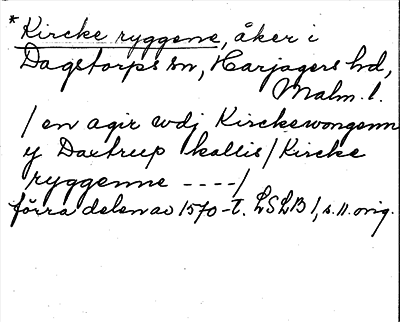 * Kircke ryggene, åker i
Dagstorps sn, Harjagers hd,
Malm. l.
/ en agir wdj Kirckewongenn
y Daxtrup kallis / Kircke
ryggenne ----/
förra delen av 1570-t. LSLB 1, s. 11. orig.